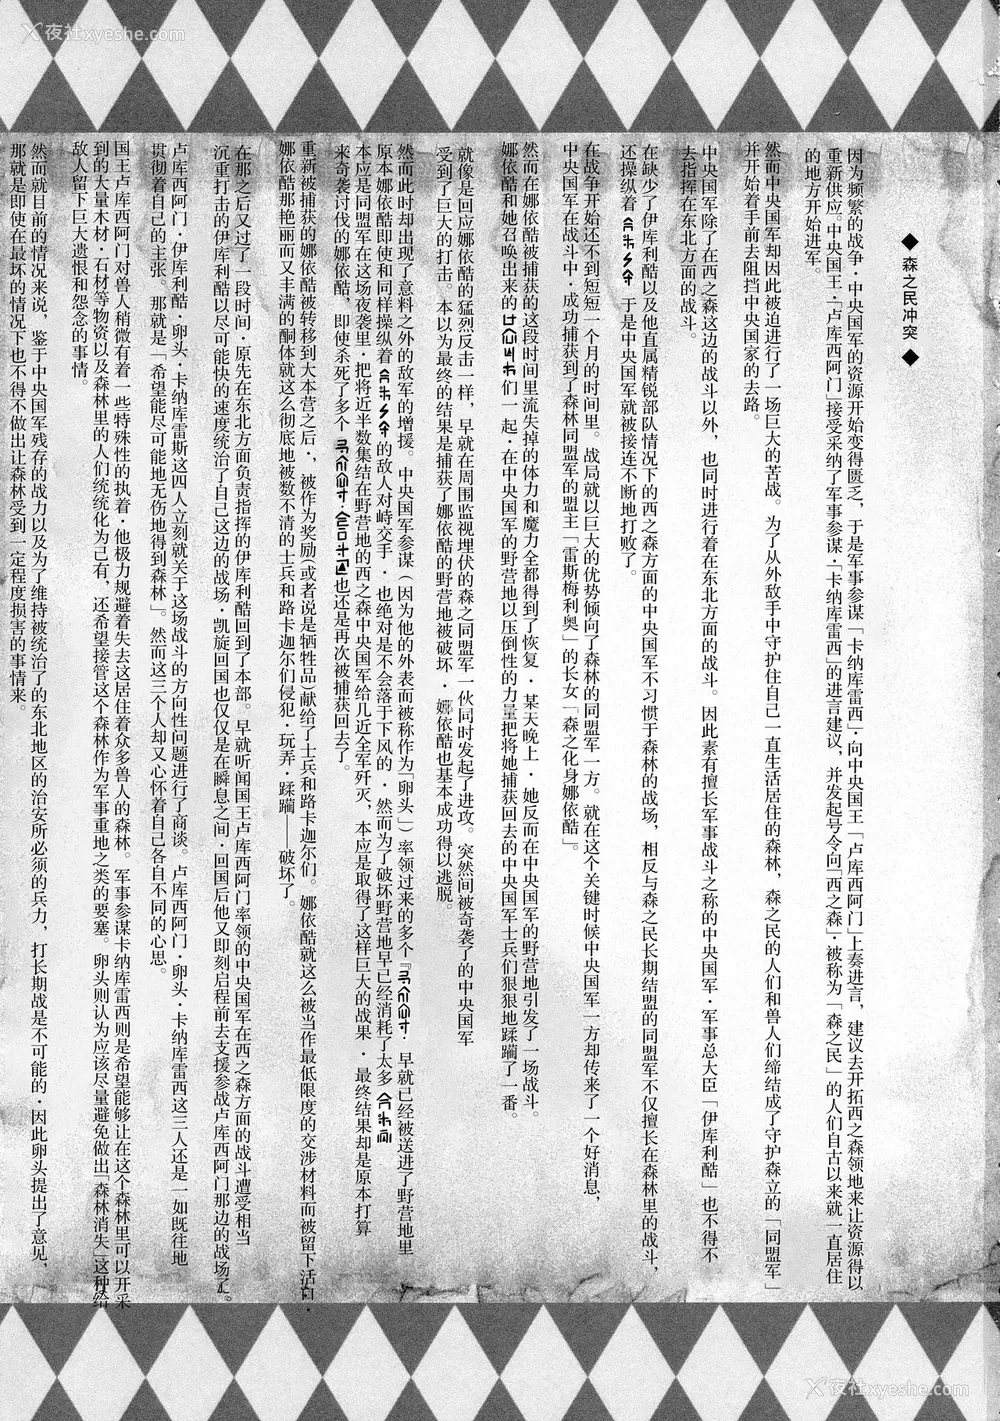 夜社xyeshe.com
◆ 森之民冲突 ◆
因为频繁的战争·中央国军的资源开始变得匮乏，于是军事参谋「卡纳库雷西」·向中央国王「卢库西阿门」上奏进言，建议去开拓西之森领地来让资源得以
重新供应。中央国王·「卢库西阿门」接受采纳了军事参谋·「卡纳库雷西」的进言建议，并发起号令向「西之森」·被称为「森之民」的人们自古以来就一直居住
的地方开始进军。
然而中央国军却因此被迫进行了一场巨大的苦战。为了从外敌手中守护住自己一直生活居住的森林，森之民的人们和兽人们缔结成了守护森立的「同盟军」
并开始着手前去阻挡中央国家的去路。
中央国军除了在西之森这边的战斗以外，也同时进行着在东北方面的战斗。因此素有擅长军事战斗之称的中央国军·军事总大臣「伊库利酷」也不得不
去指挥在东北方面的战斗。
在缺少了伊库利酷以及他直属精锐部队情况下的西之森方面的中央国军不习惯于森林的战场，相反与森之民长期结盟的同盟军不仅擅长在森林里的战斗，
还操纵着 于是中央国军就被接连不断地打败了。
在战争开始还不到短短一个月的时间里。战局就以巨大的优势倾向了森林的同盟军一方。就在这个关键时候中央国军一方却传来了一个好消息，
中央国军在战斗中·成功捕获到了森林同盟军的盟主「雷斯梅利奥」的长女「森之化身娜依酷」。
然而在娜依酷被捕获的这段时间里流失掉的体力和魔力全都得到了恢复·某天晚上·她反而在中央国军的野营地引发了一场战斗。
娜依酷和她召唤出来的 们一起·在中央国军的野营地以压倒性的力量把将她捕获回去的中央国军士兵们狠狠地蹂躏了一番。
就像是回应娜依酷的猛烈反击一样，早就在周围监视埋伏的森之同盟军一伙同时发起了进攻。突然间被奇袭了的中央国军
受到了巨大的打击。本以为最终的结果是捕获了娜依酷的野营地被破坏·娜依酷也基本成功得以逃脱。
然而此时却出现了意料之外的敌军的增援。中央国军参谋（因为他的外表而被称作为「卵头」）率领过来的多个『 ·早就已经被送进了野营地里
原本娜依酷即使和同样操纵着 的敌人对峙交手·也绝对是不会落于下风的·然而为了破坏野营地早已经消耗了太多
本应是同盟军在这场夜袭里·把将近半数集结在野营地的西之森中央国军给几近全军歼灭，本应是取得了这样巨大的战果·最终结果却是原本打算
来奇袭讨伐的娜依酷，即使杀死了多个 · 也还是再次被捕获回去了。
重新被捕获的娜依酷被转移到大本营之后·，被作为奖励(或者说是牺牲品)献给了士兵和路卡迦尔们。娜依酷就这么被当作最低限度的交涉材料而被留下活口·
娜依酷那艳丽而又丰满的酮体就这么彻底地被数不清的士兵和路卡迦尔们侵犯·玩弄·蹂躏——破坏了。
在那之后又过了一段时间·原先在东北方面负责指挥的伊库利酷回到了本部。早就听闻国王卢库西阿门率领的中央国军在西之森方面的战斗遭受相当
沉重打击的伊库利酷以尽可能快的速度统治了自己这边的战场·凯旋回国也仅仅是在瞬息之间·回国后他又即刻启程前去支援参战卢库西阿门那边的战场了。
卢库西阿门·伊库利酷·卵头·卡纳库雷斯这四人立刻就关于这场战斗的方向性问题进行了商谈。卢库西阿门·卵头·卡纳库雷西这三人还是一如既往地
贯彻着自己的主张。那就是「希望能尽可能地无伤地得到森林」。然而这三个人却又心怀着自己各自不同的心思。
国王卢库西阿门对兽人稍微有着一些特殊性的执着·他极力规避着失去这居住着众多兽人的森林。军事参谋卡纳库雷西则是希望能够让在这个森林里可以开采
到的大量木材·石材等物资以及森林里的人们统统化为己有，还希望接管这个森林作为军事重地之类的要塞。卵头则认为应该尽量避免做出「森林消失」这种给
敌人留下巨大遗恨和怨念的事情。
然而就目前的情况来说，鉴于中央国军残存的战力以及为了维持被统治了的东北地区的治安所必须的兵力，打长期战是不可能的·因此卵头提出了意见，
那就是即使在最坏的情况下也不得不做出让森林受到一定程度损害的事情来。
夜社xyeshe.com